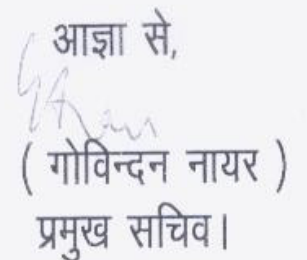 आज्ञा से,
( गोविन्दन नायर )
प्रमुख सचिव।